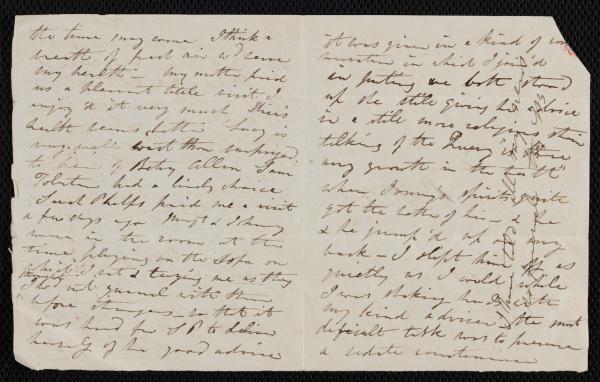 the time may come I think a
breath of fresh air wd serve
my health – My mother paid
us a pleasant little visit I
enjoy'd it very much. Chas's
health seems better Lucy is
very well wast thou surprised
to hear of Betsy Allen I am
told she had a lively choice
Sarah Phelps paid me a visit
a few days ago Margt & Johnny
were in the room at the
time playing on the Sofa on
which I sat & teazing me as they
thought I wd not quarrel with them
before strangers – so that it
was hard for S P to deliver
herself of her good advice
it was given in a kind of con
versation in which I join'd
in parting we both stood
up she still giving her advice
in a still more religious strain
talking of the Query is there
any growth in the truth
when Jonnys spirits quite
got the better of him – & he
& he jump'd up on my
back – I slipt him off as
quietly as I could while
I was shaking hands with
my kind adviser – the most
difficult task was to preserve
a sedate countenance